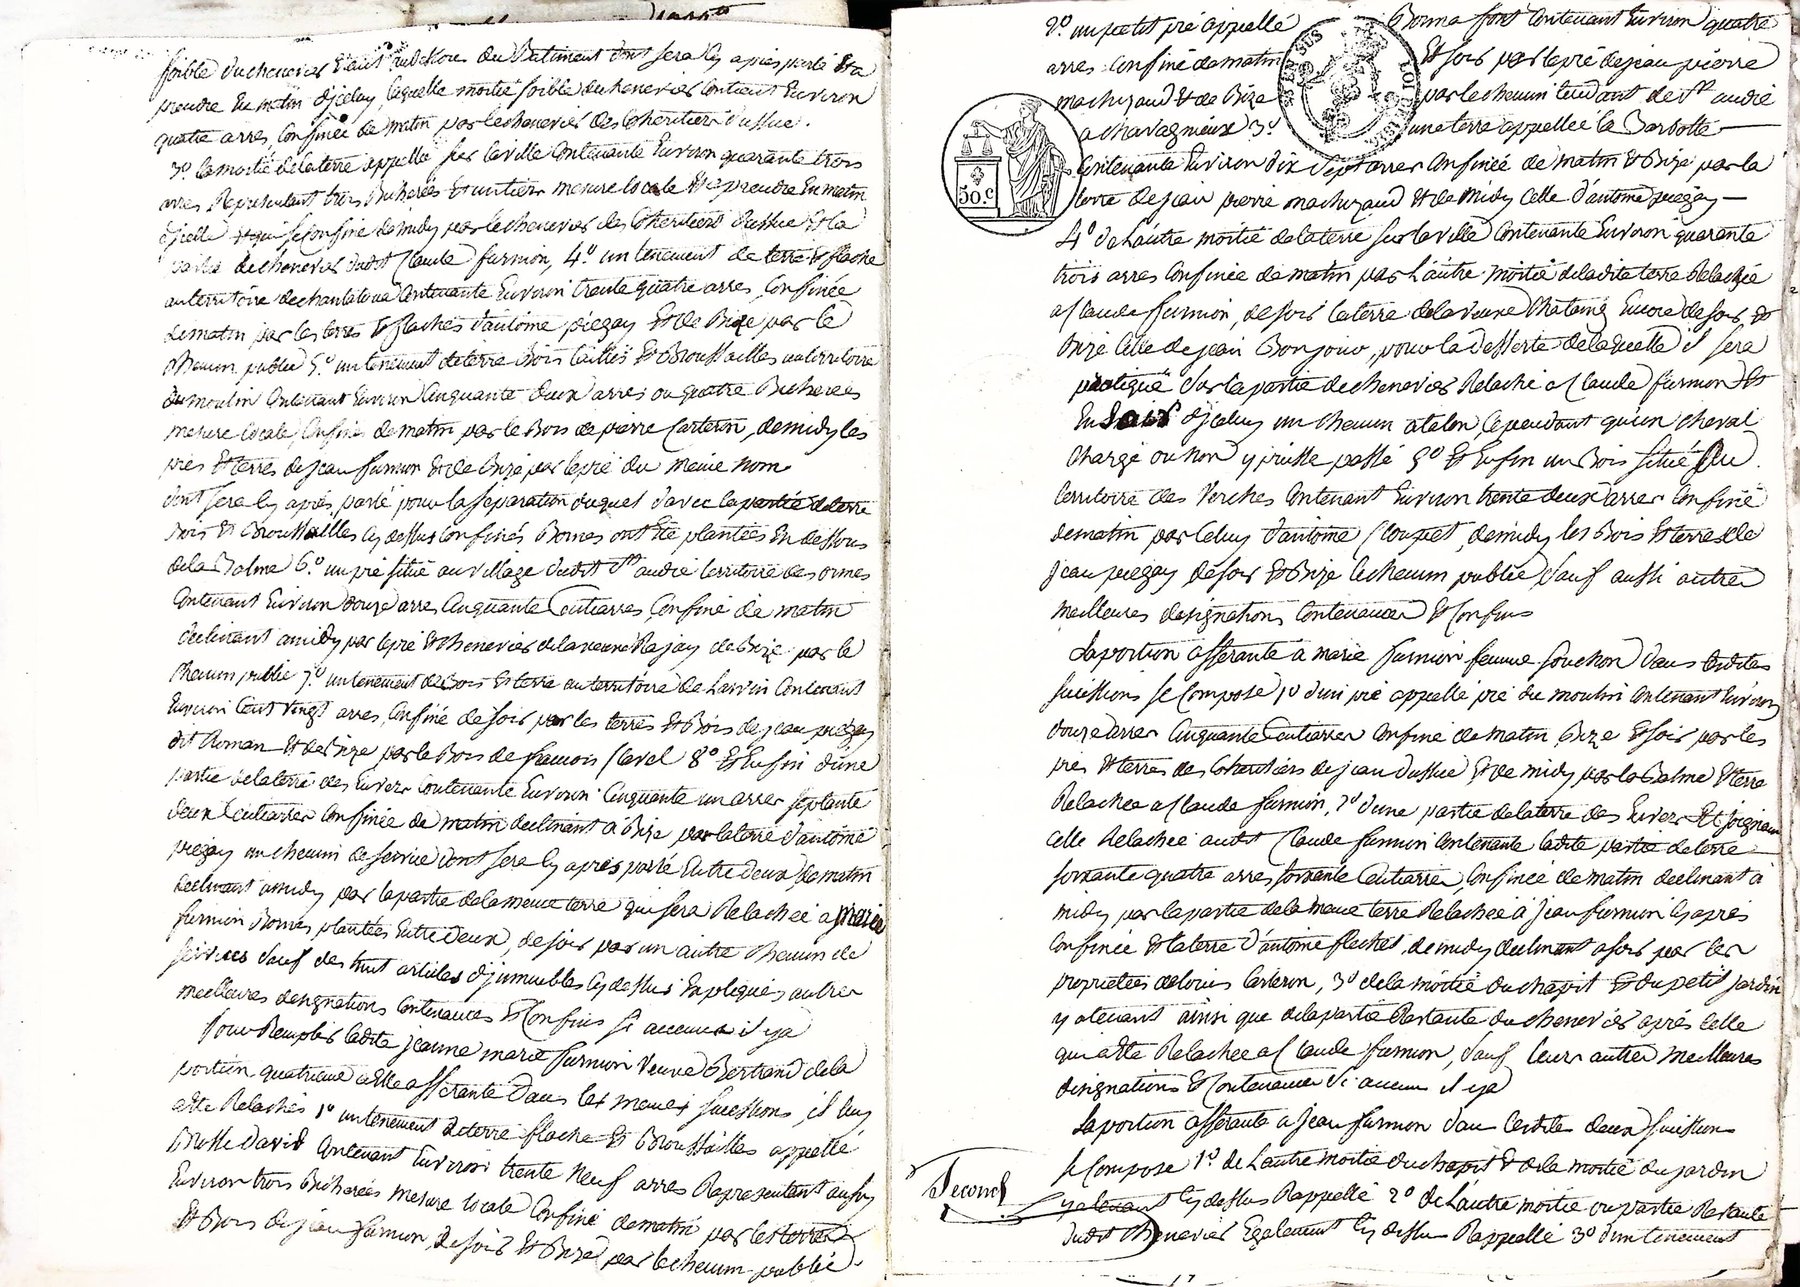 foible du chenevier Etant au dessous du Batiment dont sera cy après parlé Et a
prendre En matin d'jceluy, laquelle moitié foible du chenevier Contient Environ
quatre arres, Confinée de matin par le chenevier des Cheritiers Dussue.
3.º la moitié de la terre appellé sur la ville Contenante Environ quarante trois
arres Representant trois Bicherées Et un tiers mesure locale Et a prendre En matin
d'jcelle Et qui se Confine de midy par le chenevier des Cheritiers Dussue Et la
partie de chenevier dudit Claude furnion, 4.º un tenement de terre Et flache
au territoire de chantatoua Contenante Environ trente quatre arres, Confinée
de matin par les terres Et flaches d'antoine piegay Et de Bize par le
Chemin public 5.º un tenement de terre Bois taillis Et Broussailles au territoire
du moulin Contenant Environ Cinquante deux arres ou quatre Bicherées
mesure locale, Confiné de matin par le Bois de pierre Carteron, de midy les
prés Et terres de jean furnion Et de Bize par le pré du meme nom
dont sera cy après parlé pour la séparation duquel d'avec la partie de terre
Bois Et Broussailles cy dessus Confinés Bornes ont Eté plantées En dessous
de la Balme 6.º un pré situé au village dudit St andré territoire des ormes
Contenant Environ douze arres Cinquante Centiarres, Confiné de matin
declinant a midy par le pré Et chenevier de la veuve Rajay de Bize par le
Chemin public 7.º un tenement de Bois Et terre au territoire de Larvin Contenant
Environ Cent vingt arres, Confiné de soir par les terres Et Bois de jean piegay
dit Roman Et de Bize par le Bois de francois Clavel 8º Et Enfin d'une
partie de la terre des Envers Contenante Environ Cinquante un arres septante
deux Centiarres Confinée de matin declinant à Bize par la terre d'antoine
piegay un chemin de service dont sera cy après parlé Entre deux, de matin
declinant a midy par la partie de la meme terre qui sera Relachée a marie
furnion Bornes plantées Entre deux, de soir par un autre Chemin de
services sauf des huit articles d'jmmeubles cy dessus Expliqués autres
meilleures designations Contenances Et Confins si aucuns il y a
Pour Remplir ladite jeanne marie furnion veuve Bertrand de la
portion quatrieme a Elle afférante Dans les memes successions, il luy
a Eté Relachés 1º un tenement de terre flache Et Broussailles appellé
Brosse David Contenant Environ trente Neuf arres Representant aussy
Environ trois Bicherées mesure locale Confiné de matin par les terres
Et Bois de jean furnion, de soir Et Bize par le chemin public.
2º un petit pré appellé Bonna font Contenant Environ quatre
arres Confiné de matin Et soir par le pré de jean pierre
machizaud Et de Bize par le chemin tendant de St andré
a chavagnieux 3º une terre appellée la Barbotte
Contenante Environ dix sept arres Confinée de matin Et Bize par la
terre de jean pierre machizaud Et de midy Celle d'antoine piegay
4º de L'autre moitié de la terre sur la ville Contenante Environ quarante
trois arres Confinée de matin par L'autre moitié de ladite terre Relachée
a Claude furnion, de soir la terre de la veuve Chataing Encore de soir Et
Bize Celle de jean Bonjour, pour la Desserte de laquelle il sera
pratiqué sur la partie de chenevier Relaché a Claude furnion Et
En soir d'jceluy un chemin a talon, Cependant qu'un cheval
Chargé ou non y puisse passé 5º Et Enfin un Bois situé Au
territoire des Verches Contenant Environ trente deux arres Confiné
de matin par Celuy d'antoine Cloupet, de midy les Bois Et terres de
jean piegay de soir Et Bize le chemin public, sauf aussi autres
meilleures designations Contenances Et Confins
La portion afférante a marie furnion femme souchon Dans lesdites
successions se Compose 1º d'un pré appellé pré du moulin Contenant Environ
douze arres Cinquante Centiarres Confiné de matin, Bize Et soir par les
prés Et terres des Cheritiers de jean Dussue Et de midy par la Balme Et terre
Relachée a Claude furnion, 2º d'une partie de la terre des Envers Et joignant
Celle Relachée audit Claude furnion Contenante ladite partie de terre
soixante quatre arres, soixante Centiarres, Confinée de matin declinant à
midy par la partie de la meme terre Relachée à jean furnion cy après
Confinée Et la terre d'antoine flachet, de midy declinant a soir par les
propriétées de louis Carteron, 3º de la moitié du chapit Et du petit jardin
y atenant ainsi que de la partie Restante du chenevier après celle
qui a Eté Relachée a Claude furnion, sauf leurs autres meilleures
désignations Et Contenances si aucuns il y a
La portion afférante a jean furnion dans lesdites deux successions
se Compose 1º de L'autre moitié du chapit Et de la moitié du jardin
y atenant cy dessus Rappellé 2º de L'autre moitié ou partie Restante
dudit Chenevier Egalement cy dessus Rappellé 3º d'un tenement
Second
50.c